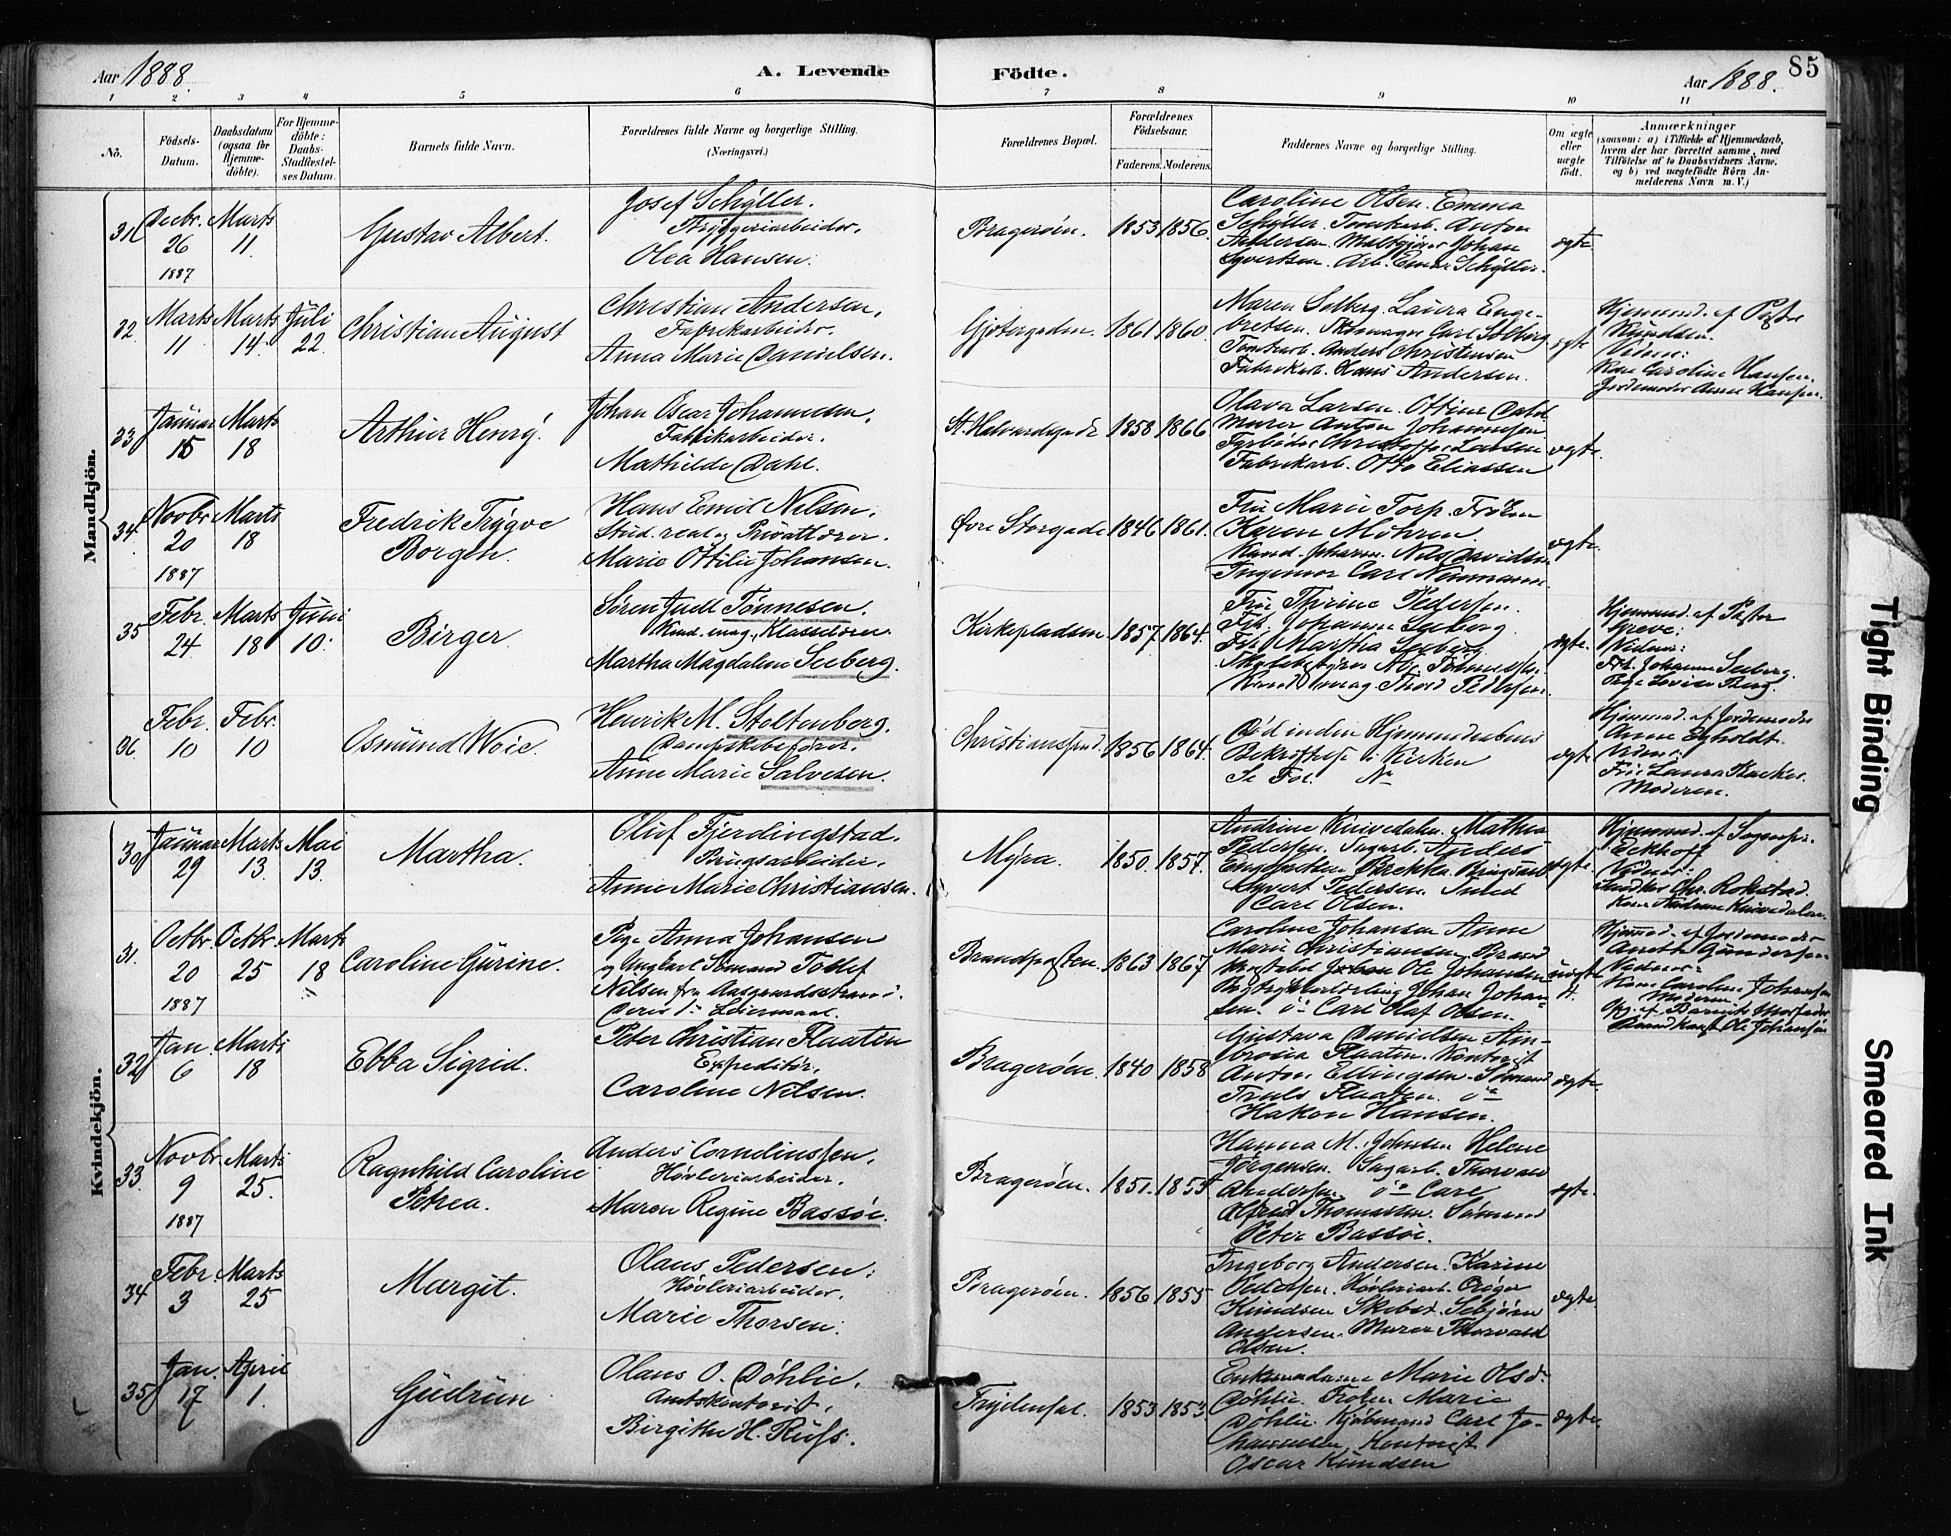 Aar 1888.
A. Levende Födte.
Aar 1888.
85
1 2 3 4 5 6 7 8 9 10 11
No.
Födsels-
Datum.
Daabsdatum
(ogsaa for
Hjemme-
döbte).
For Hjemme-
döbte:
Daabs-
Stadfestel-
ses Datum.
Barnets fulde Navn.
Forældrenes fulde Navne og borgerlige Stilling.
(Næringsvei.)
Forældrenes Bopæl.
Forældrenes
Födselsaar.
Faderens. Moderens.
Faddernes Navne og borgerlige Stilling.
Om ægte
eller
uægte
födt.
Anmærkninger
(saasom: a) i Tilfælde af Hjemmedaab,
hvem der har forrettet samme, med
Tilföielse af to Daabsvidners Navne.
og b) ved uægtefödte Börn An-
melderens Navn m. V.)
Mandkjön.
31
Decbr.
26
1887
Marts
11.
Gustav Albert.
Josef Schøller.
Bryggeriarbeider,
Olea Hansen.
Bragerøen.
1853 1856.
Caroline Olsen. Emma
Schøller. Tomtearb. Anton
Andersen. Johan
Syvertsen. Arb. Schøller.
ægte
32
Marts
11
Marts
14.
Juli
22.
Christian August
Christian Andersen,
Fabrikarbeider,
Anna Marie Danielsen.
Gjetergaden.
1861 1860.
Maren Solberg. Laura Enge-
bretsen. Carl Solberg
Tomtearb. Anders Christensen
Fabrikarb. Hans Andersen.
ægte
Hjemmed. af Pastor
Knudsen.
Vidner:
Kone Caroline Hansen.
Jordemoder Anne Hansen.
33
Januar
15
Marts
18
Arthur Henry.
Johan Oscar Johannesen,
Fabrikarbeider,
Mathilde Dahl.
St. Halvardsgade
1858 1866.
Olava Larsen. Ottine Dahl
Murer Anton Johannesen
Fyrbøder Christoffer Larsen
Fabrikarb. Otto Eliassen
ægte.
34
Novbr.
20
1887
Marts
18
Fredrik Trygve
Borgen.
Hans Emil Nilsen,
Stud. real. og Privatlærer.
Marie Ottilie Johansen.
Øvre Storgade
1846 1861.
Fru Marie Torp. Frøken
Karen Mohren.
Kand. pharm. Nils Davidsen
Ingeniør Carl Neumann
ægte.
35
Febr.
24
Marts
18
Juni
10.
Birger.
Søren Juell Tønnesen.
Kand. mag., Klasselærer.
Martha Magdalena Seeberg.
Kirkepladsen
1857. 1864.
Fru Thrine Pedersen.
Frk. Johanne Seeberg.
Frk. Martha Seeberg.
Kand. mag. Thord Pedersen.
ægte.
Hjemmed. af Pastor
Greve.
Vidner:
Frk. Johanne Seeberg.
Pige Lovise Berg.
36.
Febr.
10
Febr.
10
Osmund Woie.
Henrik M. Stoltenberg.
Dampskibsfører,
Anne Marie Salvesen.
Christianssand.
1856 1864.
Død inden Hjemmedaabens
Bekræftelse i Kirken
Se Fol. No
ægte
Hjemmed. af Jordemoder
Anne Egholdt.
Vidner:
Fru Laura
Moderen.
Kvindekjön.
30
Januar
29
Marts
13.
Mai
13.
Martha.
Oluf Fjerdingstad,
Brugsarbeider,
Anne Marie Christiansen.
Myra.
1850. 1857.
Andrine Knivedalen. Mathea
Pedersen. Sagarb. Anders
Syvert Pedersen. Smed
Carl Olsen.
ægte
Hjemmed. af Sognepr.
Eckhoff
Vidner:
Chr. Rokstad.
Kone Andrine Knivedalen.
31.
Octbr.
20
1887
Octbr.
25
Marts
18
Caroline Gurine.
Pige Anna Johansen
og Ungkarl Sømand Tollef
Nilsen fra Aasgaardsstrand.
Deres 1ste Leiermaal.
Brandposten.
1863 1867
Caroline Johansen Anne
Marie Christiansen. Brand
Ole Johansen
Johan Johan-
sen. do Carl Olaf Olsen.
uægte
Hjemmed. af Jordemoder
Anette Gundersen.
Vidner:
Kone Caroline Johansen
Moderen.
Ole Johansen
32
Jan.
6
Marts
18
Ebba Sigrid.
Peter Christian Flaaten
Expeditør,
Caroline Nilsen.
Bragerøen.
1840 1858
Gustava Danielsen Am-
brosia Flaaten. Kontorist
Anton Ellingsen. Sømand
Truls Flaaten. do
Hakon Hansen.
ægte.
33
Novbr.
9
1887
Marts
25.
Ragnhild Caroline
Petrea.
Anders Corneliussen,
Høvleriarbeider,
Maren Regine Bassøe.
Bragerøen.
1851. 1855
Hanna M. Johnsen Helene
Jørgensen. Sagarb. Thorvald
Andersen do Carl
Alfred Thomassen. Sømand
Peter Bassøe.
ægte.
34
Febr.
3
Marts
25
Margit.
Olaus Pedersen.
Høvleriarbeider,
Marie Thorsen.
Bragerøen.
1856 1855
Ingeborg Andersen. Karine
Pedersen. Høvleriarb.
Knudsen Sebjørn
Andersen. Murer Thorvald
Olsen.
ægte
35
Jan.
17
April
1.
Gudrun
Olaus O. Døhlie,
Amtskontorist,
Birgithe H. Rufs.
Frydenhal.
1853 1853.
Enkemadame Marie Olsd.
Døhlie. Frøken Marie
Døhlie. Kjøbmand Carl Jo-
hannesen. Kontorist
Oscar Knudsen
ægte.
Tight Binding
Smeared Ink